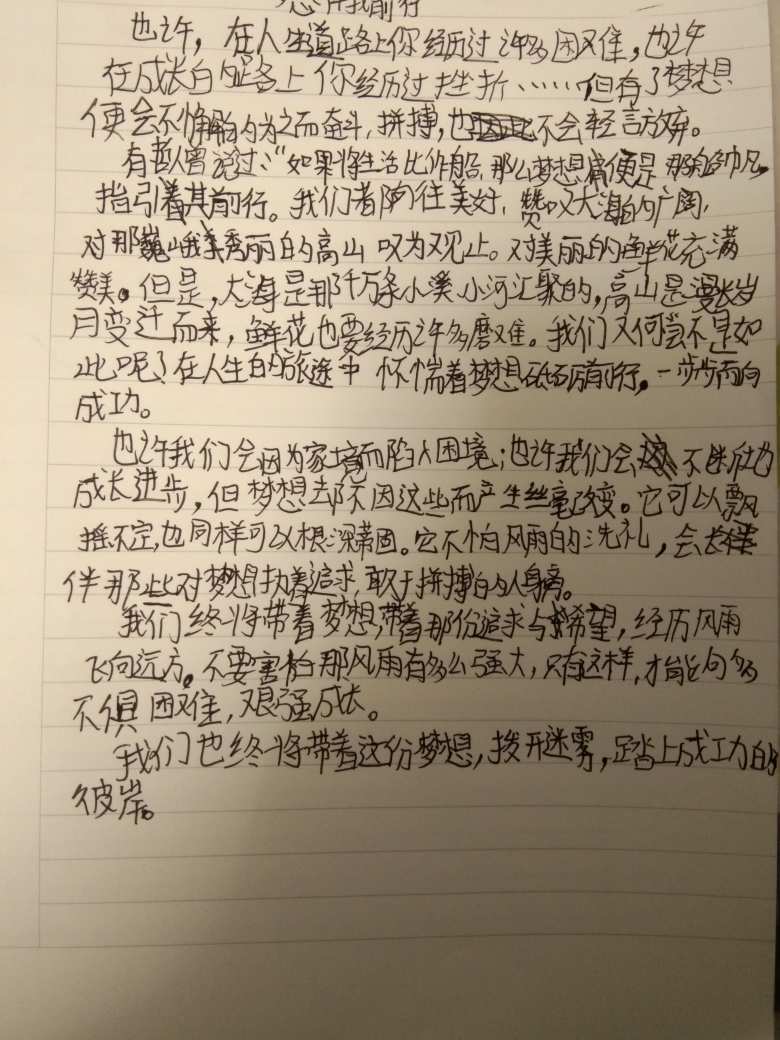 想伴我前行
也许，在人生道路上你经历过许多困难，也许
在成长的路上你经历过挫折……但有了梦想
便会不懈的为之而奋斗，拼搏，也不会轻言放弃。
有哲人曾说过：“如果将生活比作船，那么梦想便是那船帆。
指引着其前行。我们都向往美好，赞叹大海的广阔，
对那巍峨秀丽的高山叹为观止。对美丽的鲜花充满
赞美。但是，大海是那千万条小溪小河汇聚的，高山是漫长岁
月变迁而来，鲜花也要经历许多磨难。我们又何尝不是如
此呢？在人生的旅途中怀惴着梦想砥砺前行。一步步而向
成功。
也许我们会因为家境而陷入困境；也许我们会不断地
成长进步，但梦想却不因这些而产生丝毫改变。它可以飘
摇不定，也同样可以根深蒂固。它不怕风雨的洗礼，会
伴那些对梦想执着追求，敢于拼搏的人身旁。
我们终将带着梦想，带着那份追求与希望，经历风雨
飞向远方。不要害怕那风雨有多么强大，只有这样，才能够
不惧困难，艰强成长。
我们也终将带着这份梦想，拨开迷雾，踏上成功的
彼岸。